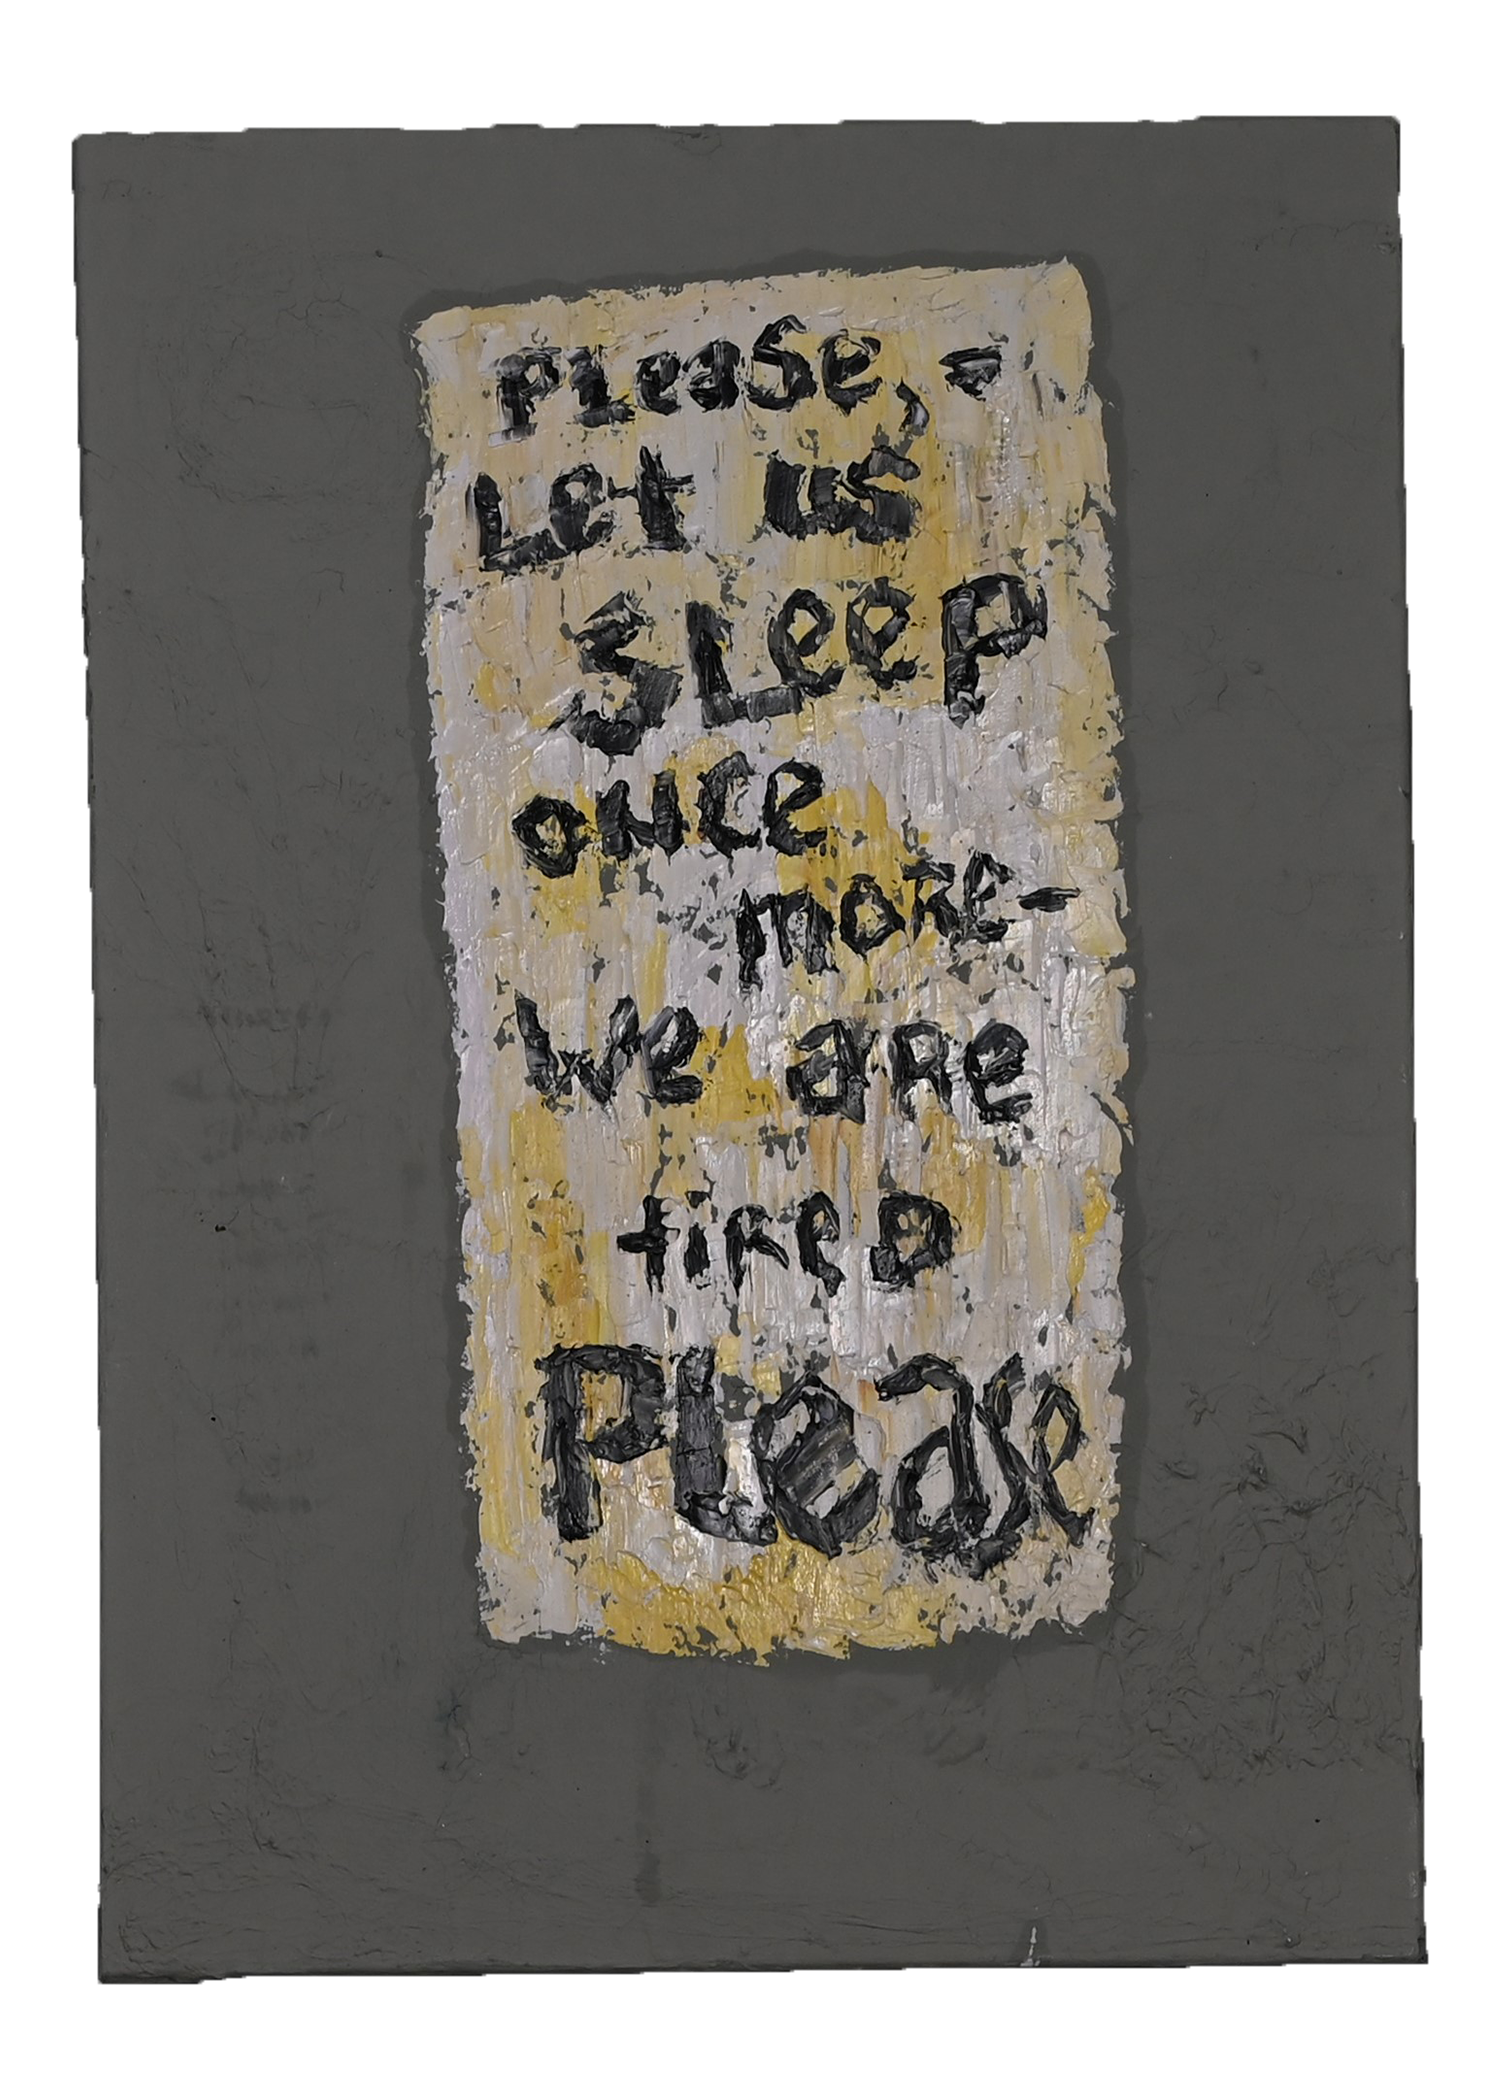 Please, -
Let us
SLeeP
ONCE
MORE-
We aRe
tiReD
PLease